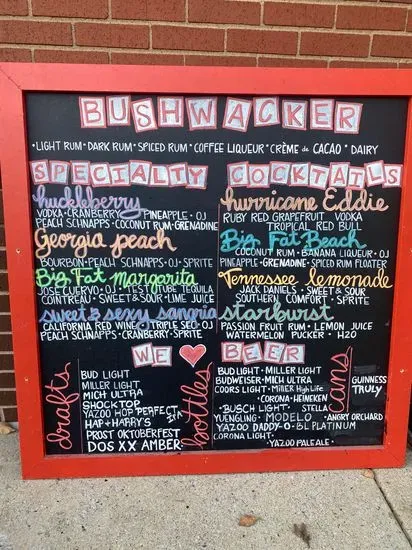 BUSHWACKER
·LIGHT RUM·DARK RUM·SPICED RUM·COFFEE LIQUEUR·CRÈME de CACAO·DAIRY
SPECIALTY COCKTAILS
huckleberry
VODKA·CRANBERRY·PINEAPPLE·OJ
PEACH SCHNAPPS·COCONUT RUM·GRENADINE
Georgia peach
BOURBON·PEACH SCHNAPPS·OJ·SPRITE
Big Fat margarita
JOSE CUERVO·OJ·TEST TUBE TEQUILA
COINTREAU·SWEET&SOUR·LIME JUICE
sweet & sexy sangria
CALIFORNIA RED WINE·TRIPLE SEC·OJ
PEACH SCHNAPPS·CRANBERRY·SPRITE
hurricane Eddie
RUBY RED GRAPEFRUIT VODKA
TROPICAL RED BULL
Big Fat Beach
COCONUT RUM·BANANA LIQUEUR·OJ
PINEAPPLE·GRENADINE·SPICED RUM FLOATER
Tennessee lemonade
JACK DANIELS·SWEET & SOUR
SOUTHERN COMFORT·SPRITE
starburst
PASSION FRUIT RUM·LEMON JUICE
WATERMELON PUCKER·H2O
WE ♥ BEER
drafts
BUD LIGHT
MILLER LIGHT
MICH ULTRA
SHOCKTOP
YAZOO HOP PERFECT
HAP+HARRY'S
PROST OKTOBERFEST
DOS XX AMBER
bottles
BUD LIGHT·MILLER LIGHT
BUDWEISER·MICH ULTRA
COORS LIGHT·MILLER High LIFE
·CORONA·HEINEKEN
·BUSCH LIGHT· STELLA
YUENGLING·MODELO·ANGRY ORCHARD
YAZOO DADDY-O·BL PLATINUM
CORONA LIGHT·
YAZOO PALE ALE·
cans
GUINNESS
TRULY